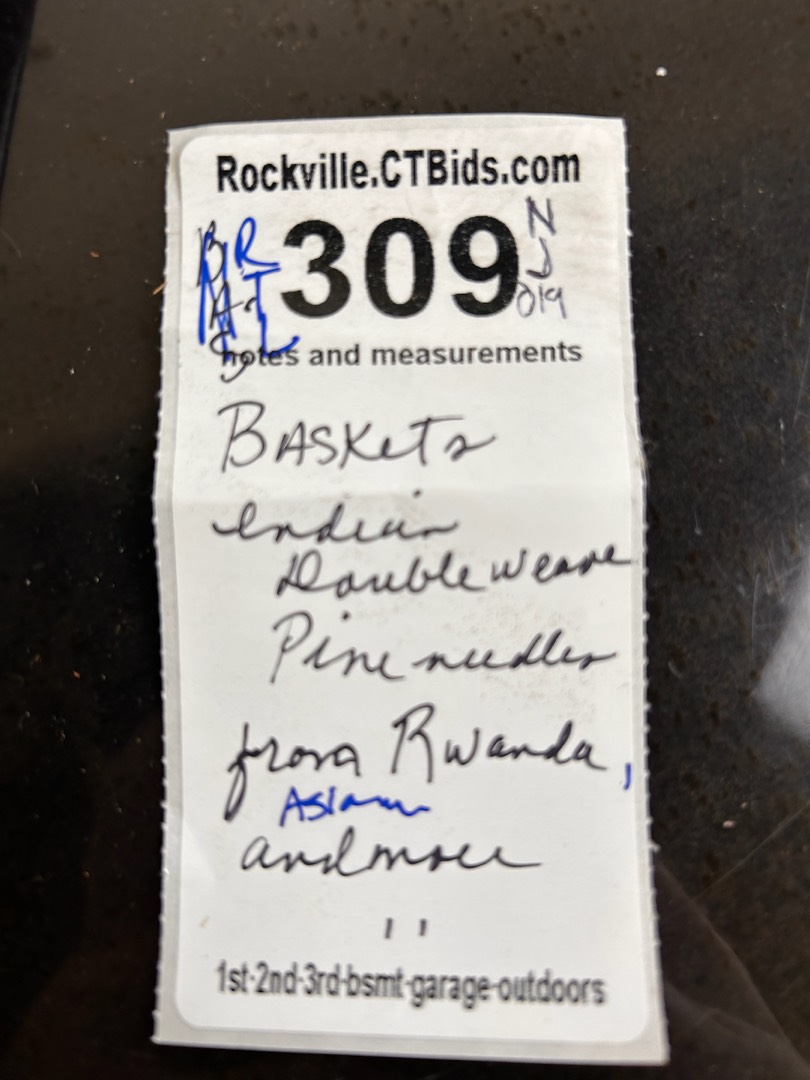 Rockville.CTBids.com
309
N
notes and measurements
BASKets
Indian
Double weave
Pine needles
from Rwanda,
Asian
and more
" 
1st-2nd-3rd-bsmt-garage-outdoors